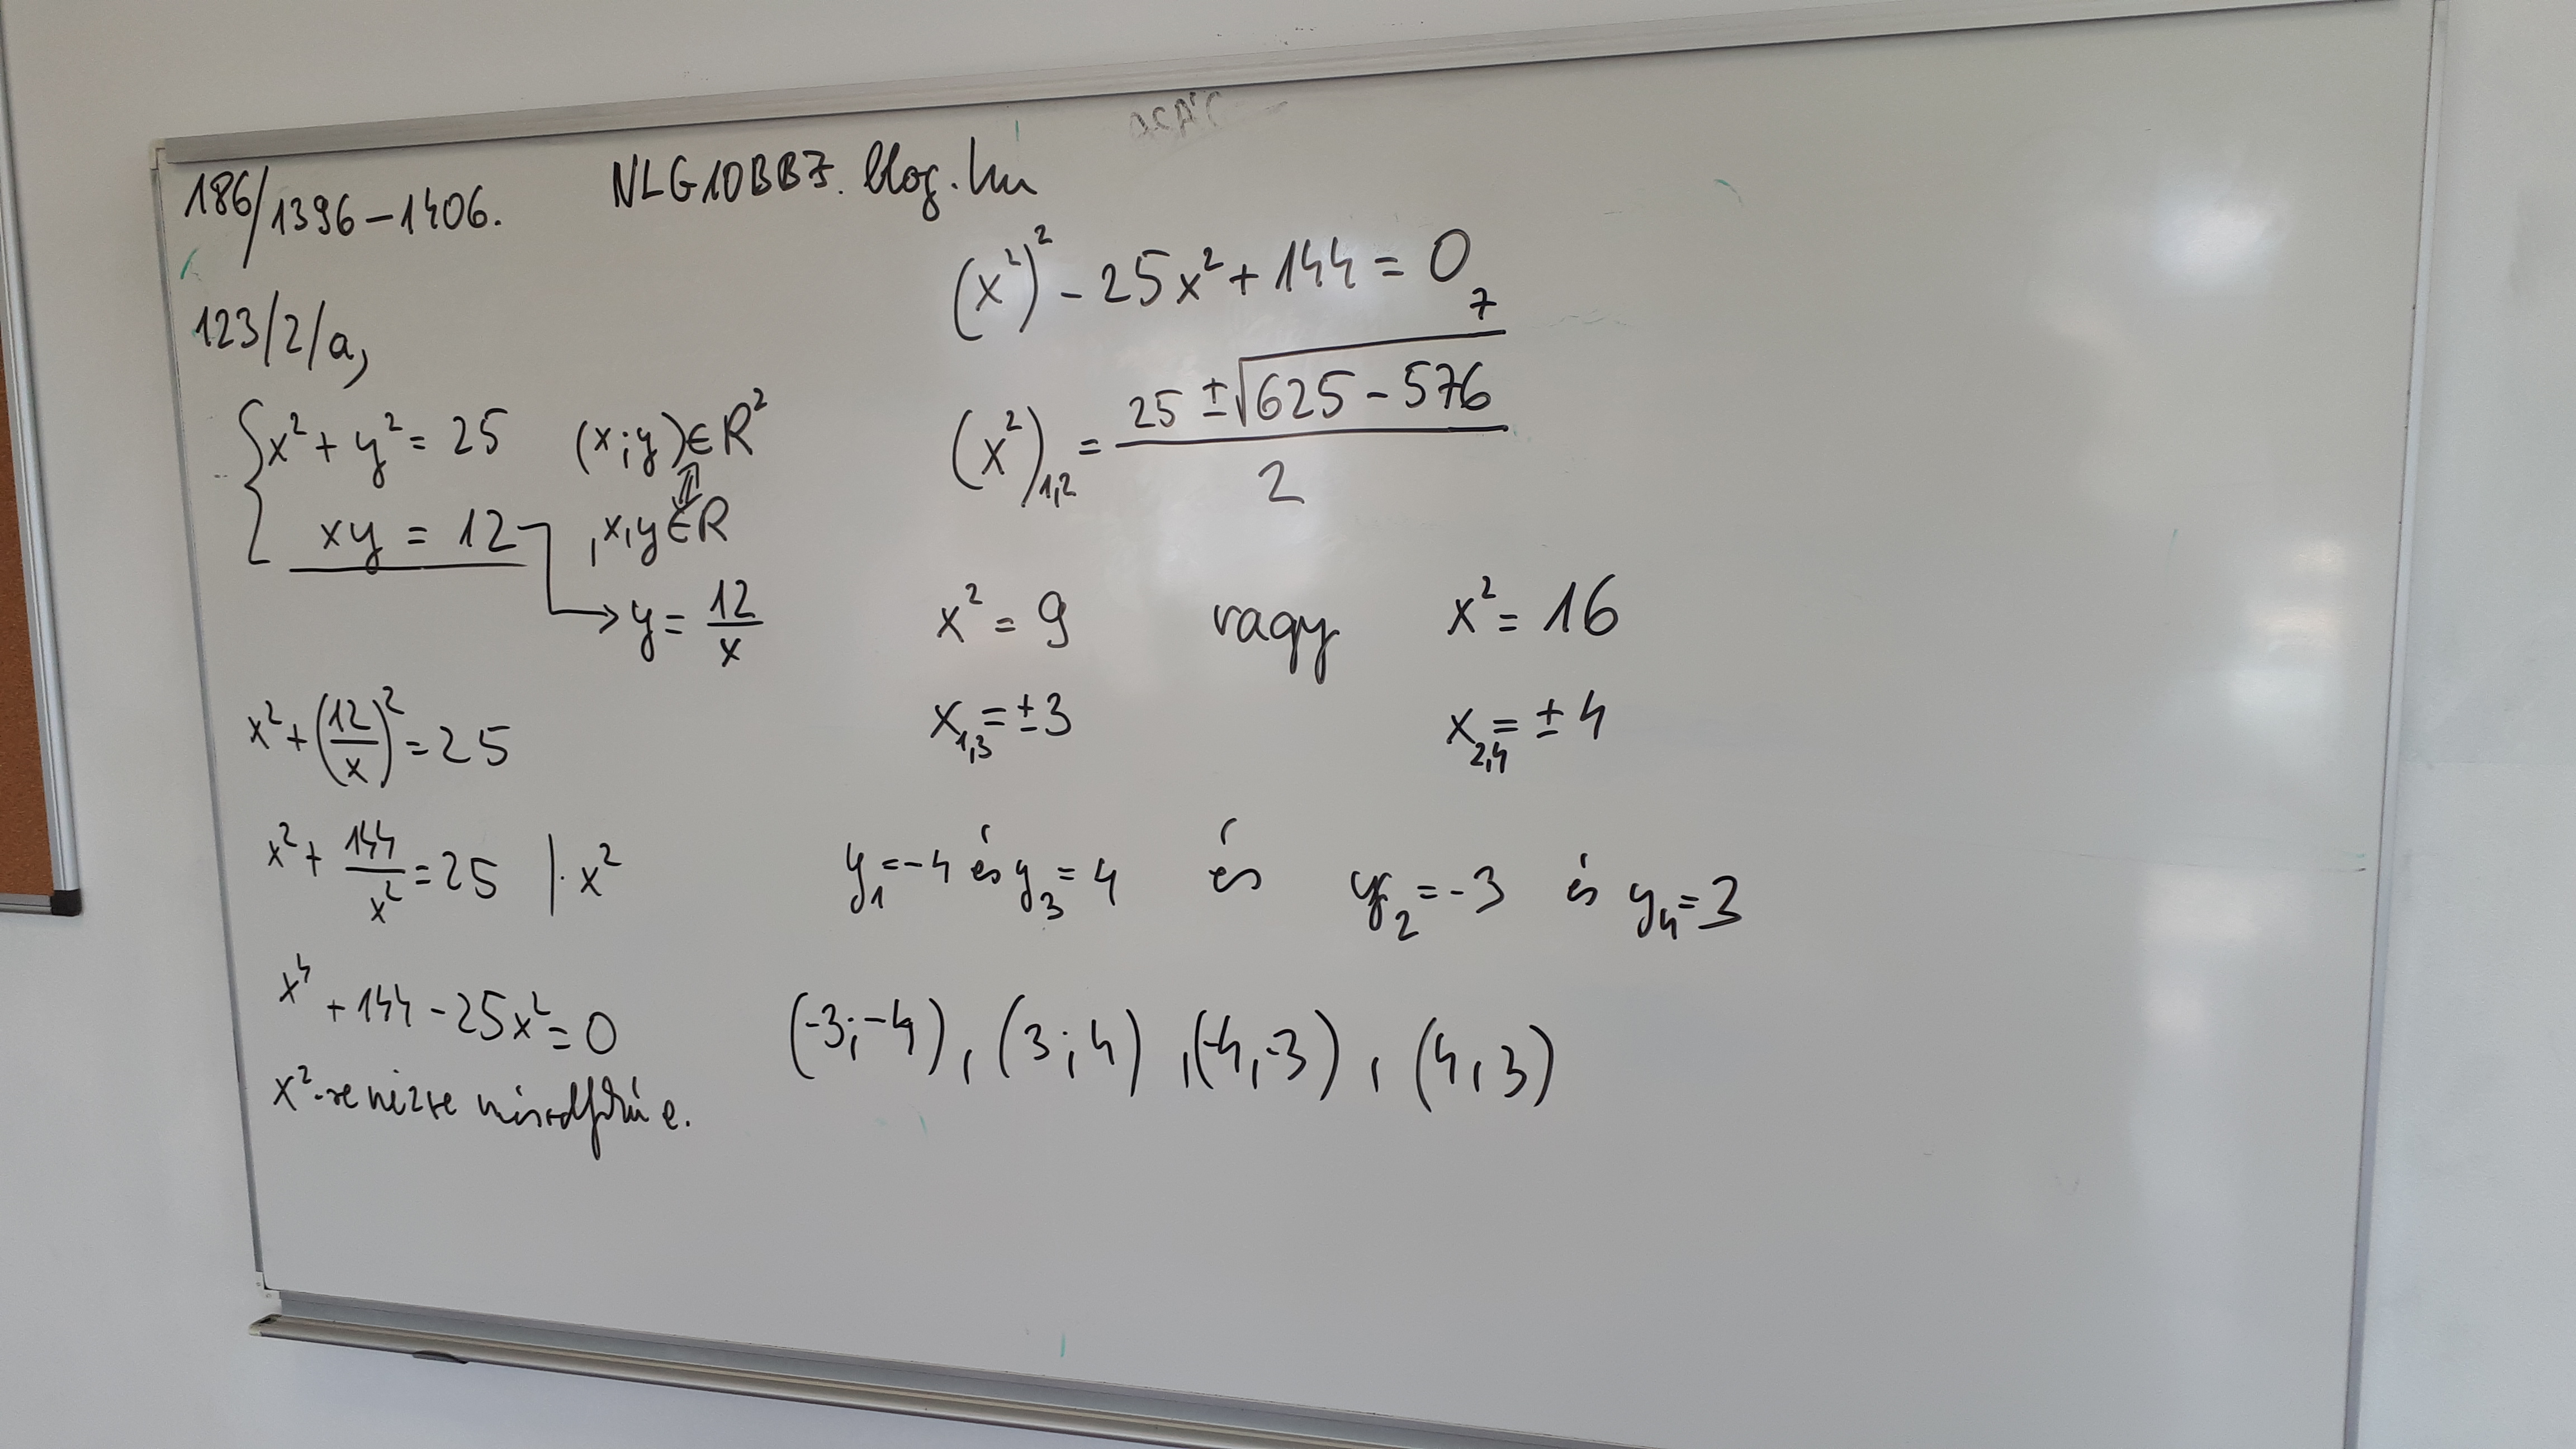 186/1396-1406.
NLG10BB7.blog.hu
123/2/a,
{x² + y² = 25 (x;y)∈R²
⇕
xy = 12 , x,y∈R
→ y = 12/x
x² + (12/x)² = 25
x² + 144/x² = 25 |·x²
x⁴ + 144 - 25x² = 0
x²-re nézve másodfokú e.
(x²)² - 25x² + 144 = 0
7
(x²)₁,₂ = (25 ± √(625 - 576))/2
x² = 9 vagy x² = 16
x₁,₃ = ±3 x₂,₄ = ±4
y₁ = -4 és y₃ = 4 és y₂ = -3 és y₄ = 3
(-3;-4), (3;4), (-4,-3), (4,3)